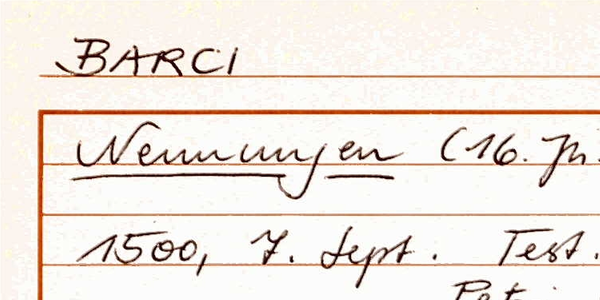 BARCI
Nennungen (16. Jh.
1500, 7. Sept. Test.